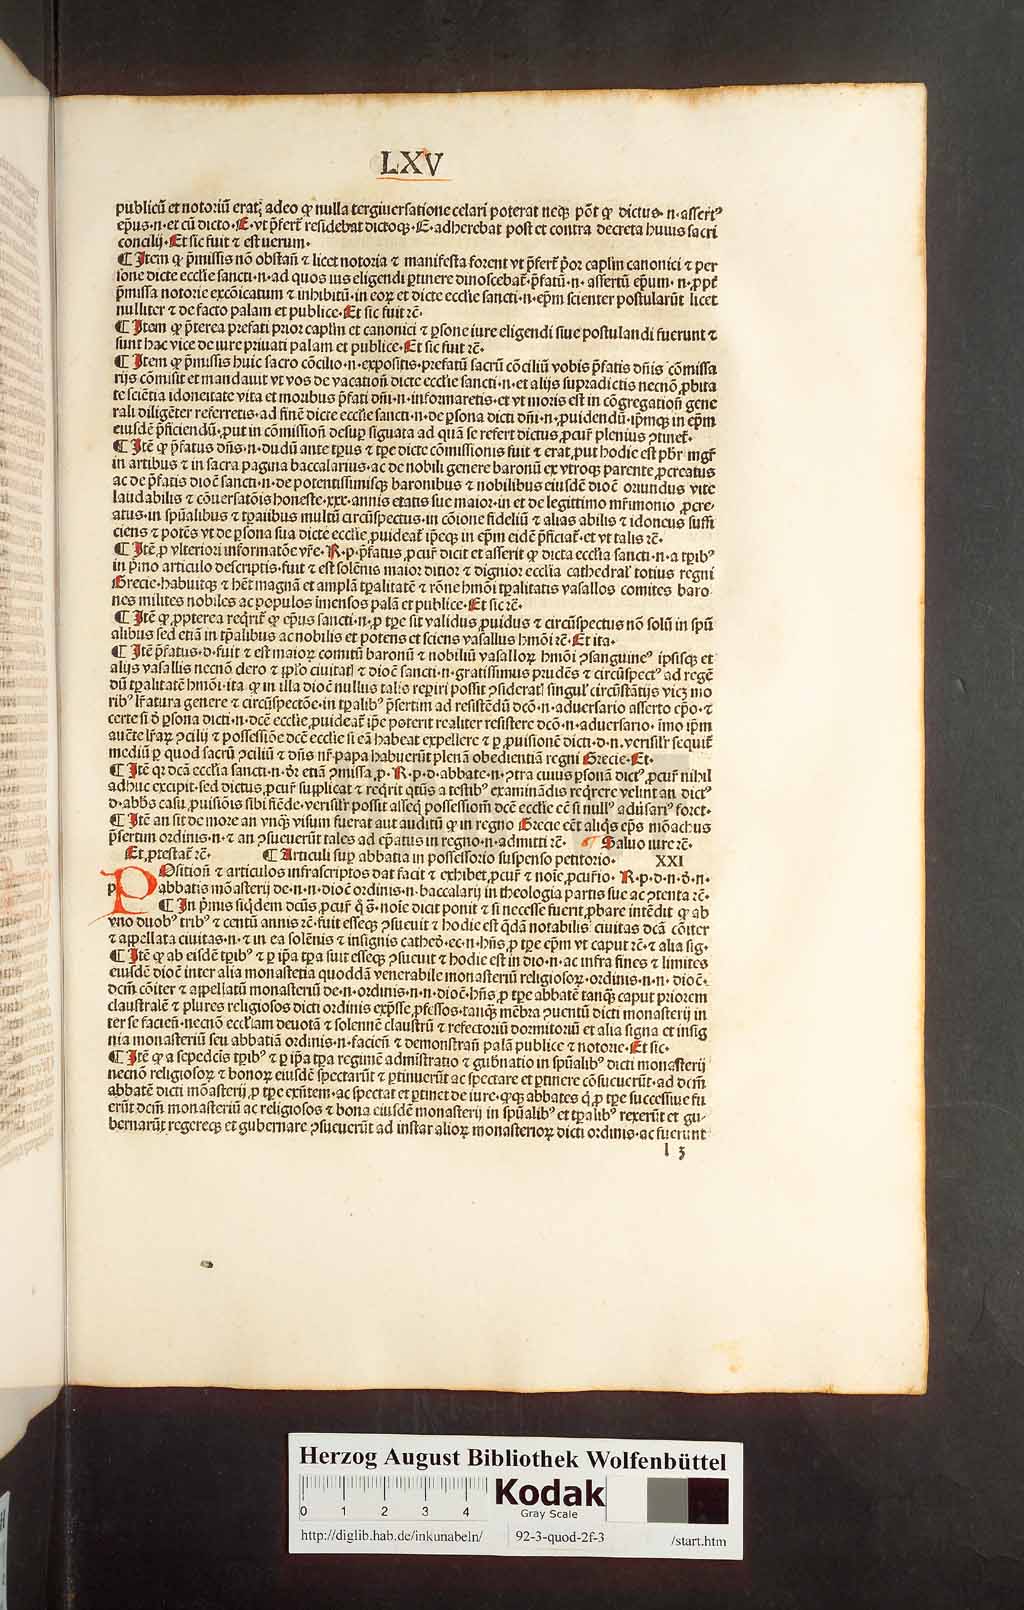 LXV
publicũ et notoriũ erat; adeo ꝙ nulla tergiuersatione celari poterat neqꝫ põt ꝙ dictus·n·assertꝰ
ep̃us·n·et cũ dicto·E·vt p̃fert̃ residebat dictoqꝫ·E·adherebat post et contra decreta huius sacri
concilij·Et sic fuit ⁊ est verum·
¶ Item ꝙ p̃missis nõ obstañ ⁊ licet notoria ⁊ manifesta forent vt p̃fert̃ p̃or cap̃lm canonici ⁊ per
sone dicte eccl̃ie sancti·n·ad quos ius eligendi ꝑtinere dinoscebat̃·p̃fatũ·n·assertũ ep̃um·n·ꝓpt̃
p̃missa notorie excõicatum ⁊ inhibitũ·in eoꝝ et dicte eccl̃ie sancti·n·ep̃m scienter postularũt licet
nulliter ⁊ de facto palam et publice·Et sic fuit ꝛc̃·
¶ Item ꝙ p̃terea prefati prior cap̃lm et canonici ⁊ ꝑsone iure eligendi siue postulandi fuerunt ⁊
sunt hac vice de iure priuati palam et publice·Et sic fuit ꝛc̃·
¶ Item ꝙ p̃missis huic sacro cõcilio·n·expositis·prefatũ sacrũ cõciliũ vobis p̃fatis dñis cõmissa
rijs cõmisit et mandauit vt vos de vacationẽ dicte eccl̃ie sancti·n·et alijs supradictis necnõ ꝓbita
te sciẽtia idoneitate vita et moribus p̃fati dñi·n·informaretis·et vt moris est in cõgregationẽ gene
rali diligẽter referretis·ad finẽ dicte eccl̃ie sancti·n·de ꝑsona dicti dñi·n·ꝓuidendũ·ip̃mqꝫ in ep̃m
eiusdẽ p̃ficiendũ·ꝓut in cõmissionẽ desuꝑ signata ad quã se refert dictus ꝓcur̃ plenius ꝯtinet̃·
¶ Itẽ ꝙ p̃fatus dñs·n·dudũ ante tp̃us ⁊ tp̃e dicte cõmissionis fuit ⁊ erat·put hodie est pbr̃ mgr̃
in artibus ⁊ in sacra pagina baccalarius·ac de nobili genere baronũ ex vtroqꝫ parente ꝓcreatus
ac de p̃fatis dioc̃ sancti·n·de potentissimisqꝫ baronibus ⁊ nobilibus eiusdẽ dioc̃ oriundus vite
laudabilis ⁊ cõuersatõis honeste·xxx·annis etatis sue maior·in et de legittimo mr̃imonio ꝓcre-
atus·in sp̃ualibus ⁊ tp̃alibus multũ circũspectus·in cõione fideliũ ⁊ alias abilis ⁊ idoneus suffi
ciens ⁊ potẽs vt de ꝑsona sua dicte eccl̃ie ꝓuideat̃ ip̃eqꝫ in ep̃m eidẽ p̃ficiat̃·et vt talis ꝛc̃·
¶ Itẽ ꝓ vlteriori informatõe vr̃e·R·p·p̃fatus ꝓcur̃ dicit et asserit ꝙ dicta eccl̃ia sancti·n·a tp̃ibꝰ
in p̃mo articulo descriptis·fuit ⁊ est solẽnis maior ditior ⁊ dignior eccl̃ia cathedral̃ totius regni
Grecie·habuitqꝫ ⁊ hẽt magnã et amplã tp̃alitatẽ ⁊ rõne hmõi tp̃alitatis vasallos comites baro
nes milites nobiles ac populos imensos palã et publice·Et sic ꝛc̃·
¶ Itẽ ꝙ ꝓpterea reqꝛit̃ ꝙ ep̃us sancti·n·ꝓ tp̃e sit validus ꝓuidus ⁊ circũspectus nõ solũ in sp̃u
alibus sed etiã in tp̃alibus ac nobilis et potens et sciens vasallus hmõi ꝛc̃·Et ita·
¶ Itẽ p̃fatus·d·fuit ⁊ est maioꝝ comitũ baronũ ⁊ nobiliũ vasalloꝝ hmõi ꝯsanguineꝰ ipsisqꝫ et
alijs vasallis necnõ clero ⁊ ip̃lo ciuitat̃ ⁊ dioc̃ sancti·n·gratissimus prudẽs ⁊ circũspectꝰ ad regẽ
dũ tp̃alitatẽ hmõi·ita ꝙ in illa dioc̃ nullus talis reꝑiri possit ꝯsiderat̃ singul̃ circũstãtijs vicꝫ mo
ribꝰ lr̃atura genere ⁊ circũspectõe·in tp̃alibꝰ p̃sertim ad resistẽdũ dcõ·n·aduersario asserto ep̃o·⁊
certe si ð ꝑsona dicti·n·dcẽ eccl̃ie ꝓuideat̃ ip̃e poterit realiter resistere dcõ·n·aduersario·imo ip̃m
aucẽte lr̃aꝝ ꝯcilij ⁊ possessiõe dcẽ eccl̃ie si eã habeat expellere ⁊ ꝑ ꝓuisionẽ dicti·d·n·verisilr̃ sequit̃
mediũ ꝑ quod sacrũ ꝯciliũ ⁊ dñs nr̃ papa habuerũt plenã obedientiã regni Grecie·Et·
¶ Itẽ qꝛ dcã eccl̃ia sancti·n·ðr etiã ꝯmissa ꝓ·R·p·d·abbate·n·ꝯtra cuius ꝑsonã dictꝰ ꝓcur̃ nihil
adhuc excipit·sed dictus ꝓcur̃ supplicat ⁊ reqꝛit qtũs a testibꝰ examinãdis reqꝛere velint an dictꝰ
d·abb̃s casu ꝓuisiõis sibi fiẽde·verisilr̃ possit asseqꝫ possessiom̃ dcẽ eccl̃ie cẽ si nullꝰ adũsariꝰ foret·
¶ Itẽ an sit de more an vnqꝫ visum fuerat aut auditũ ꝙ in regno Grecie cẽt aliqꝫ ep̃s mõachus
p̃sertim ordinis·n·⁊ an ꝯsueuerũt tales ad ep̃atus in regno·n·admitti ꝛc̃· ¶ Saluo iure ꝛc̃·
Et ꝓtestat̃ ꝛc̃· ¶ Articuli suꝑ abbatia in possessorio suspenso petitorio· XXI
POsitioñ ⁊ articulos infrascriptos dat facit ⁊ exhibet ꝓcur̃ ⁊ noĩe ꝓcur̃io·R·p·d·n·ð·n·
abbatis mõasterij de·n·n·dioc̃ ordinis·n·baccalarij in theologia partis sue ac ꝯtenta ꝛc̃·
¶ In p̃mis siqꝫdem dcũs ꝓcur̃ q̃ s̃·noĩe dicit ponit ⁊ si necesse fuerit ꝓbare intẽdit ꝙ ab
vno duobꝰ tribꝰ ⁊ centũ annis ꝛc̃·fuit esseqꝫ ꝯsueuit ⁊ hodie est q̃dã notabilis ciuitas dcã cõiter
⁊ appellata ciuitas·n·⁊ in ea solẽnis ⁊ insignis catheð·ec·n·hñs ꝓ tp̃e ep̃m vt caput ꝛc̃·⁊ alia sig·
¶ Itẽ ꝙ ab eisdẽ tp̃ibꝰ ⁊ ꝑ ip̃a tp̃a fuit esseqꝫ ꝯsueuit ⁊ hodie est in dio·n·ac infra fines ⁊ limites
eiusdẽ dioc̃ inter alia monasteria quoddã venerabile monasteriũ religiosoꝝ·ordinis·n·n·dioc̃·
dcm̃ cõiter ⁊ appellatũ monasteriũ de·n·ordinis·n·n·dioc̃·hñs ꝓ tp̃e abbatẽ tanqꝫ caput priorem
claustralẽ ⁊ plures religiosos dicti ordinis exp̃sse ꝓfessos·tanqꝫ mẽbra ꝯuentũ dicti monasterij in
ter se facieñ·necnõ eccl̃iam deuotã ⁊ solennẽ claustrũ ⁊ refectoriũ dormitoriũ et alia signa et insig
nia monasteriũ seu abbatiã ordinis·n·facieñ ⁊ demonstrañ palã publice ⁊ notorie·Et sic·
¶ Itẽ ꝙ a sepedcis tp̃ibꝰ ⁊ ꝑ ip̃a tp̃a regimẽ admĩstratio ⁊ gub̃natio in sp̃ualibꝰ dicti monasterij
necnõ religiosoꝝ ⁊ bonoꝝ eiusdẽ spectarũt ⁊ ꝑtinuerũt ac spectare et ꝑtinere cõsueuerũt·ad dcm̃
abbatẽ dicti mõasterij ꝓ tp̃e exñtem·ac spectat et ꝑtinet de iure·ꝙqꝫ abbates q̃ ꝓ tp̃e successiue fu
erũt dcm̃ monasteriũ ac religiosos ⁊ bona eiusdẽ monasterij in sp̃ualibꝰ et tp̃alibꝰ rexerũt et gu-
bernarũt regereqꝫ et gubernare ꝯsueuerũt ad instar alioꝝ monasterioꝝ dicti ordinis·ac fuerunt
l 3
Herzog August Bibliothek Wolfenbüttel
0 1 2 3 4
Kodak
Gray Scale
http://diglib.hab.de/inkunabeln/ 92-3-quod-2f-3 /start.htm